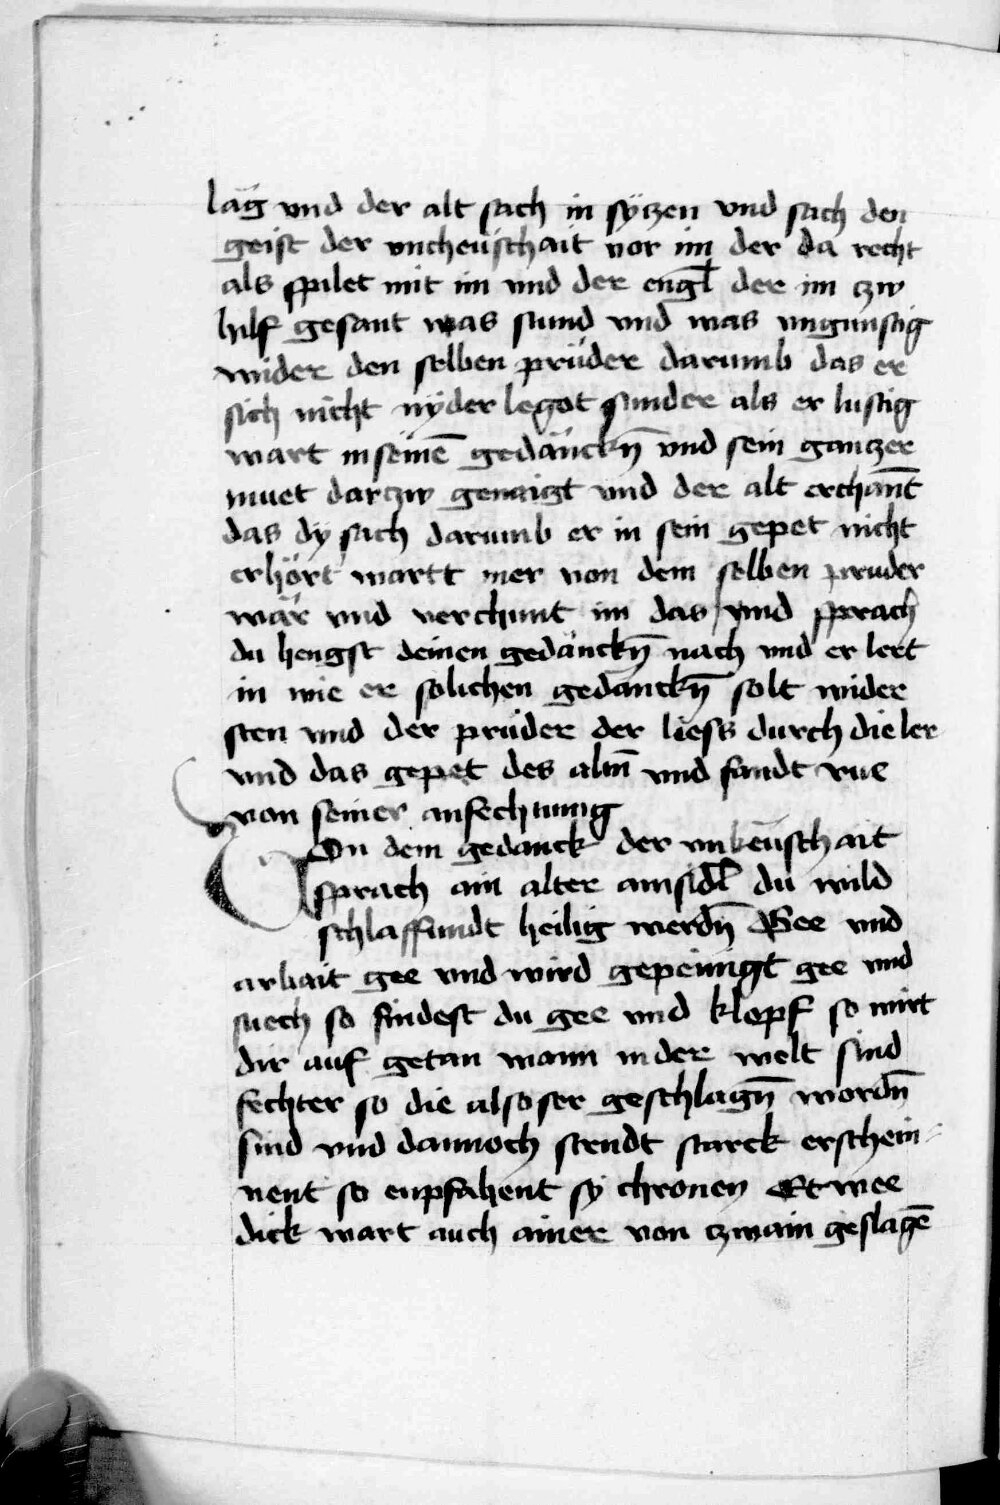 läg vnd der alt sach in sÿtzen vnd sach den
geist der vncheüschait vor im der da recht
als spilet mit im vnd der engl̄ der im tzw
hilf gesant was stund vnd was vngünstig
wider den selben prüder darumb das er
sich nicht nÿder legot sunder als er lustig
wart in seinē gedänckn̄ vnd sein gantzer
muet dartzw genaigt vnd der alt erchan̄t
das dy sach darumb er in sein gepet nicht
erhört wartt mer von dem selben pruder
wär vnd verchunt im das vnd sprach
du hengst deinen gedänckn̄ nach vnd er lert
in wie er solichen gedanckn̄ solt wider
sten vnd der prüder der liess durch die ler
vnd das gepet des altn̄ vnd fandt rue
von seiner anfechtung
Von dem gedanck der vnkeuschait
sprach ain alter ainsidl̄ du wild
schlaffundt heilig werdn̄ Gee vnd
arbait gee vnd wird gepeinigt gee vnd
suech so findest du gee vnd klopf so wirt
dir auf getan wann in der welt sind
fechter so die also ser geschlagn̄ wordn̄
sind vnd dannoch stendt starck erschein-
nent so enpfahent sy chronen Et wee
dick wart auch ainer von tzwain geslagē